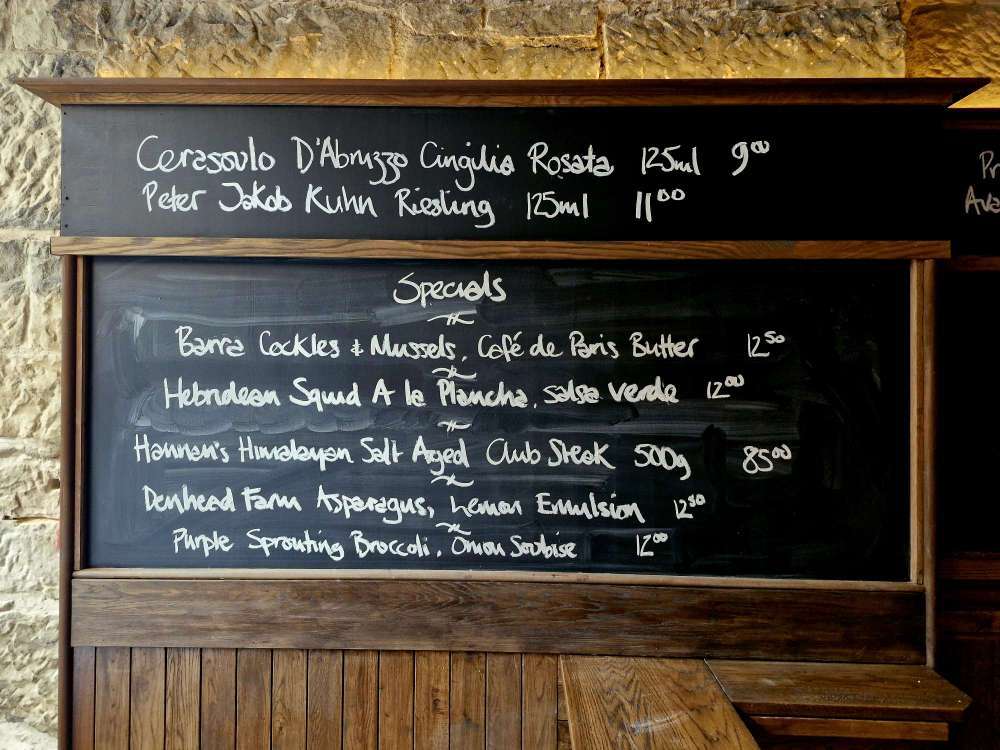 Cerasoulo D'Abruzzo Cingilia Rosata 125ml 9.00
Peter Jakob Kuhn Riesling 125ml 11.00
Pr
Ava
Specials
Barra Cockles & Mussels, Café de Paris Butter 12.50
Hebridean Squid A la Plancha, salsa verde 12.00
Hannan's Himalayan Salt Aged Club Steak 500g 85.00
Denhead Farm Asparagus, Lemon Emulsion 12.50
Purple Sprouting Broccoli, Onion Soubise 12.00